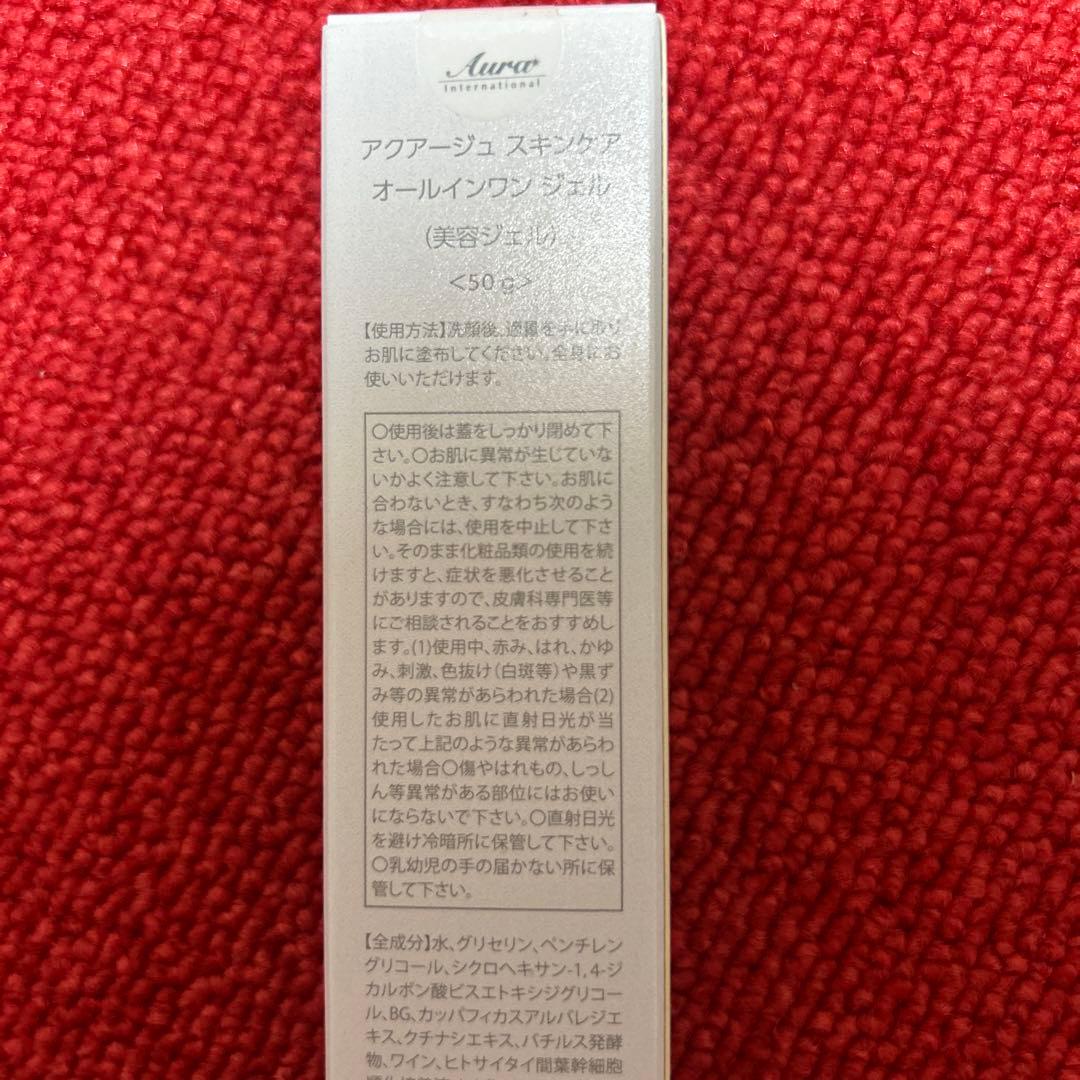 Aura
International
アクアージュ スキンケア
オールインワン ジェル
(美容ジェル)
<50 g>
【使用方法】洗顔後、適量を手に取り
お肌に塗布してください。全身にお
使いいただけます。
○使用後は蓋をしっかり閉めて下
さい。○お肌に異常が生じていな
いかよく注意して下さい。お肌に
合わないとき、すなわち次のよう
な場合には、使用を中止して下さ
い。そのまま化粧品類の使用を続
けますと、症状を悪化させること
がありますので、皮膚科専門医等
にご相談されることをおすすめし
ます。(1)使用中、赤み、はれ、かゆ
み、刺激、色抜け(白斑等)や黒ず
み等の異常があらわれた場合(2)
使用したお肌に直射日光が当
たって上記のような異常があらわ
れた場合○傷やはれもの、しっし
ん等異常がある部位にはお使い
にならないで下さい。○直射日光
を避け冷暗所に保管して下さい。
○乳幼児の手の届かない所に保
管して下さい。
【全成分】水、グリセリン、ペンチレン
グリコール、シクロヘキサン-1,4-ジ
カルボン酸ビスエトキシジグリコー
ル、BG、カッパフィカスアルバレジエ
キス、クチナシエキス、バチルス発酵
物、ワイン、ヒトサイタイ間葉幹細胞